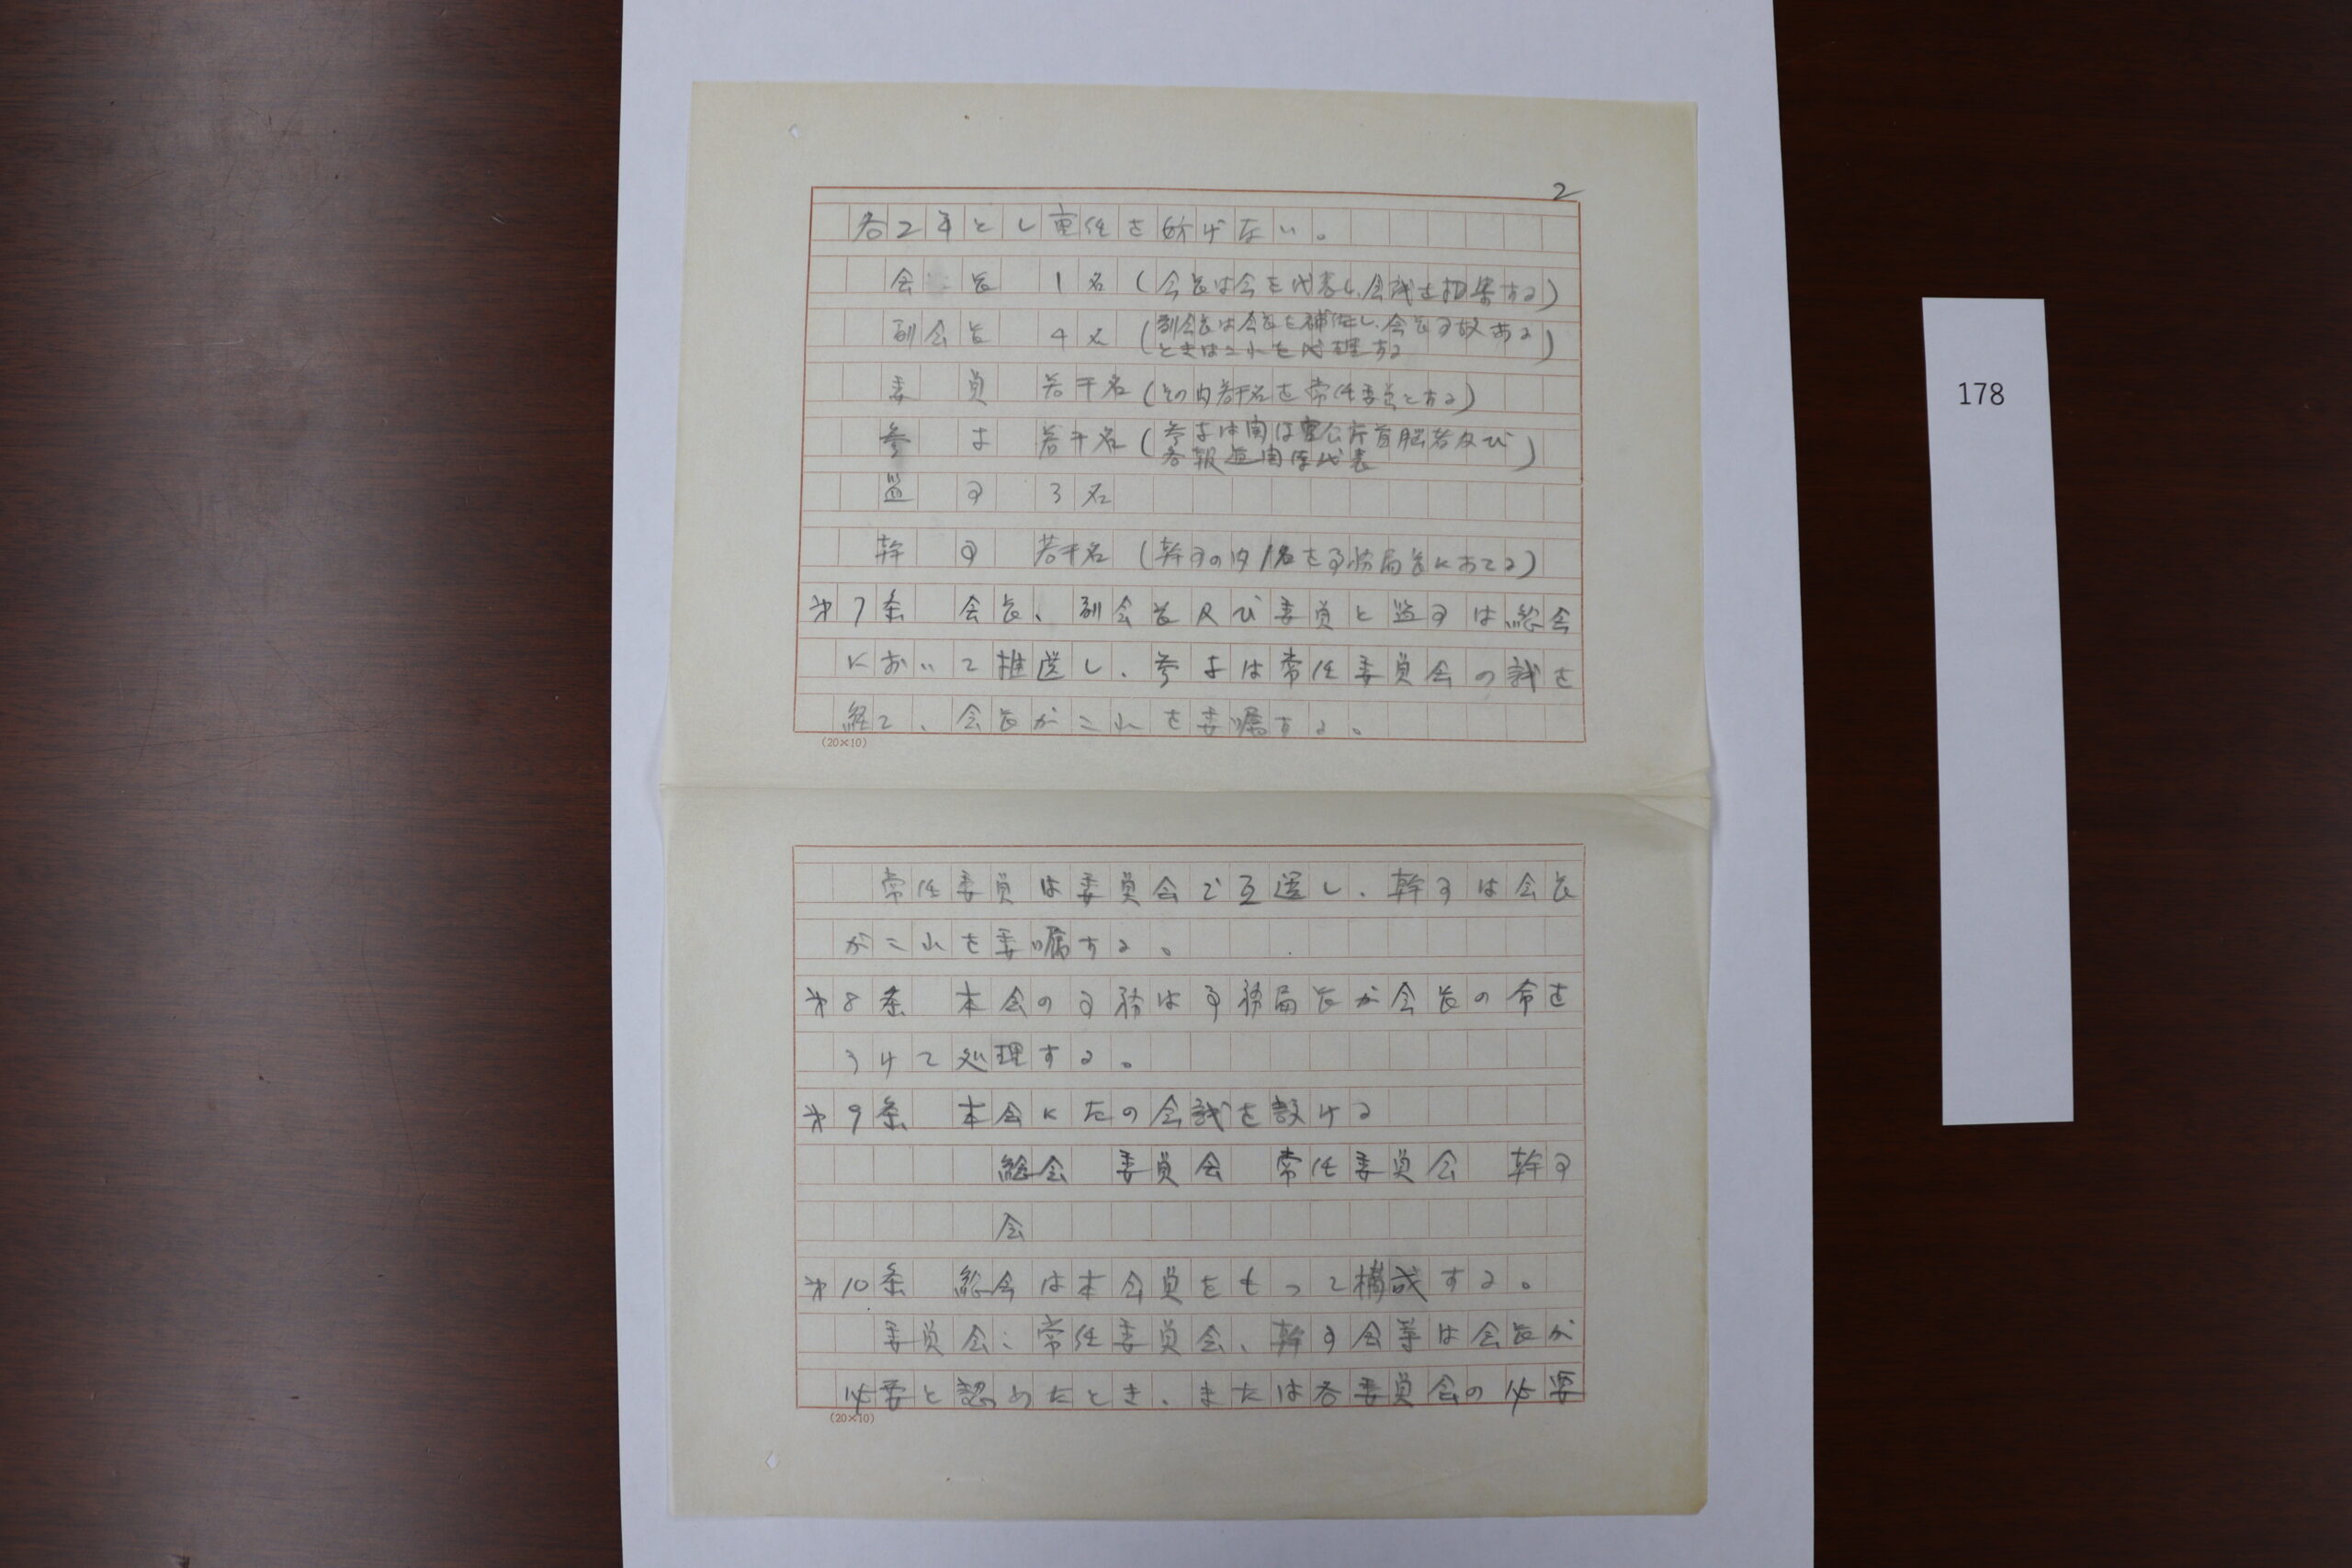 2
各2年とし重任を妨げない。
会長 1名(会長は会を代表し、会議を招集する)
副会長 4名(副会長は会長を補佐し、会長事故ある
ときはこれを代理する)
委員 若干名(その内若干名を常任委員とする)
参与 若干名(参与は関係官公庁首脳者及び
各報道関係代表)
監事 3名
幹事 若干名(幹事の内1名を事務局長にあてる)
才7条 会長、副会長及び委員と監事は総会
において推選し、参与は常任委員会の議を
経て、会長がこれを委嘱する。
(20×10)
常任委員は委員会で互選し、幹事は会長
がこれを委嘱する。
才8条 本会の事務は事務局長が会長の命を
うけて処理する。
才9条 本会に左の会議を設ける
総会 委員会 常任委員会 幹事
会
才10条 総会は本会員をもって構成する。
委員会、常任委員会、幹事会等は会長が
必要と認めたとき、または各委員会の必要
(20×10)
178